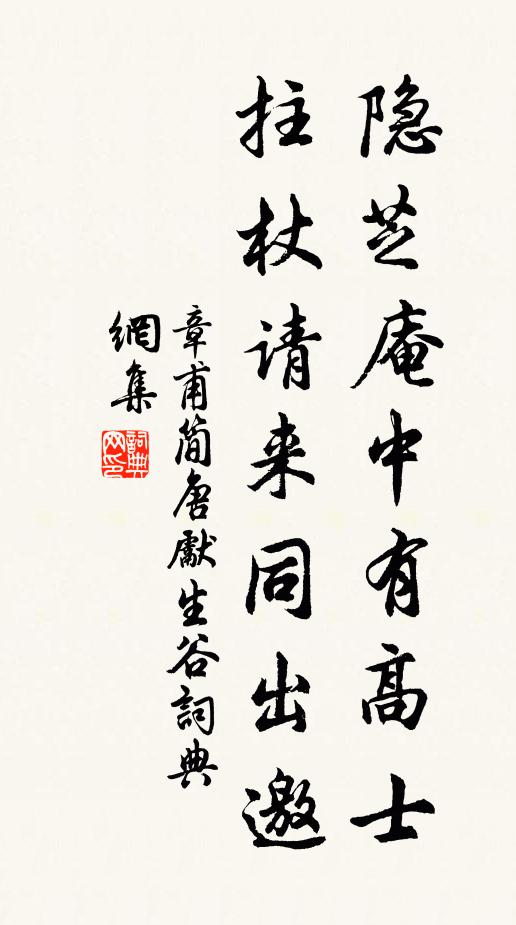 隐芝庵中有高士
拄杖请来同出邀
章甫简唐獻生谷詞典
網集
詞典網印